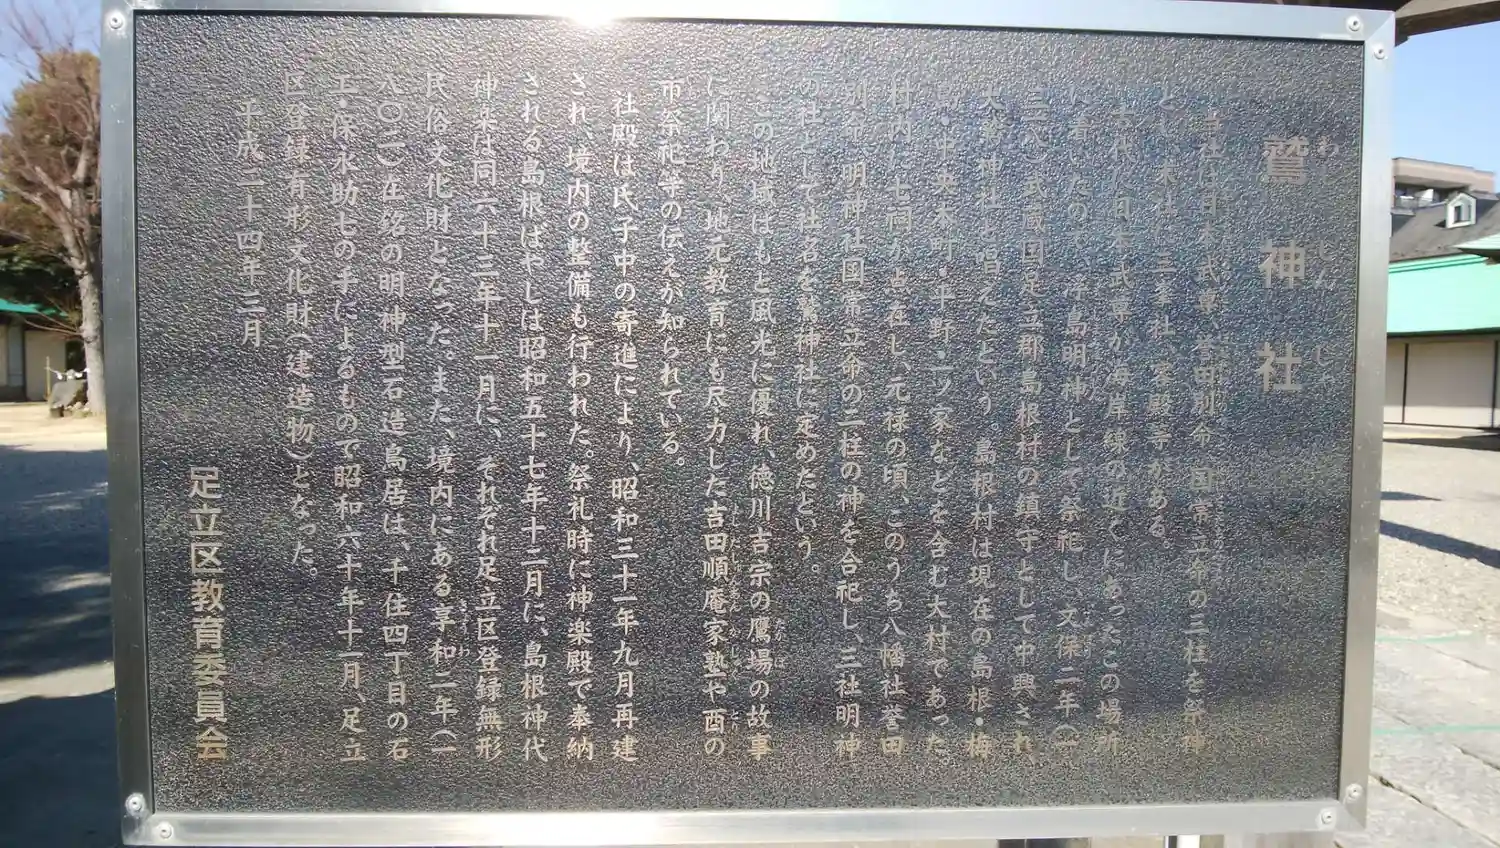 鷲神社
わしじんじゃ
当社は日本武尊、誉田別命、国常立命の三柱を祭神
とし、末社に三峯社、宮殿等がある。
古代、日本武尊が海岸線の近くにあったこの場所
に着いたので、浮島明神として祭祀し、文保二年(一
三一八)武蔵国足立郡島根村の鎮守として中興され、
大鷲神社と唱えたという。島根村は現在の島根・梅
島・中央本町・平野・一ツ家などを含む大村であった。
村内に七祠が点在し、元禄の頃、このうち八幡社誉田
別命、明神社国常立命の二柱の神を合祀し、三社明神
の社として社名を鷲神社に定めたという。
この地域はもと風光に優れ、徳川吉宗の鷹場の故事
に関わり、地元教育にも尽力した吉田順庵家塾や酉の
市祭祀等の伝えが知られている。
社殿は氏子中の寄進により、昭和三十一年九月再建
され、境内の整備も行われた。祭礼時に神楽殿で奉納
される島根ばやしは昭和五十七年十二月に、島根神代
神楽は同六十三年十一月に、それぞれ足立区登録無形
民俗文化財となった。また、境内にある享和二年(一
八〇二)在銘の明神型石造鳥居は、千住四丁目の石
工・保永助七の手によるもので昭和六十年十一月、足立
区登録有形文化財(建造物)となった。
平成二十四年三月
足立区教育委員会